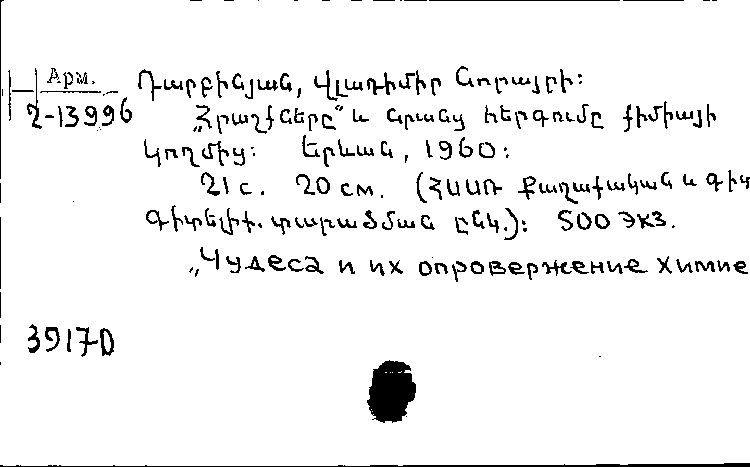 Арм.
2-13996
Դարբինյան, Վլադիմիր Նորայրի:
„Հրաշքները" և նրանց հերքումը քիմիայի
կողմից: Երևան, 1960:
21 с. 20 см. (ՀՍՍՌ Քաղաքական և գիտ
գիտելիք. տարածման ընկ.): 500 экз.
„Чудеса и их опровержение химие
3917-D